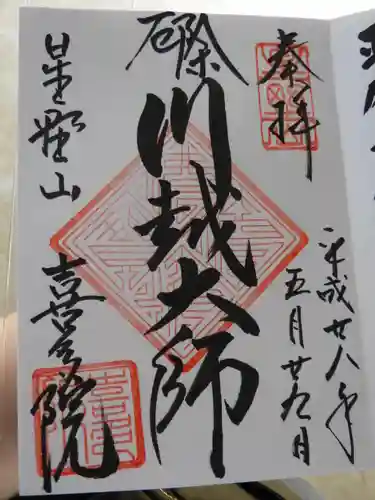 奉拝
平成廿八年
五月廿九日
厄除
川越大師
星野山
喜多院